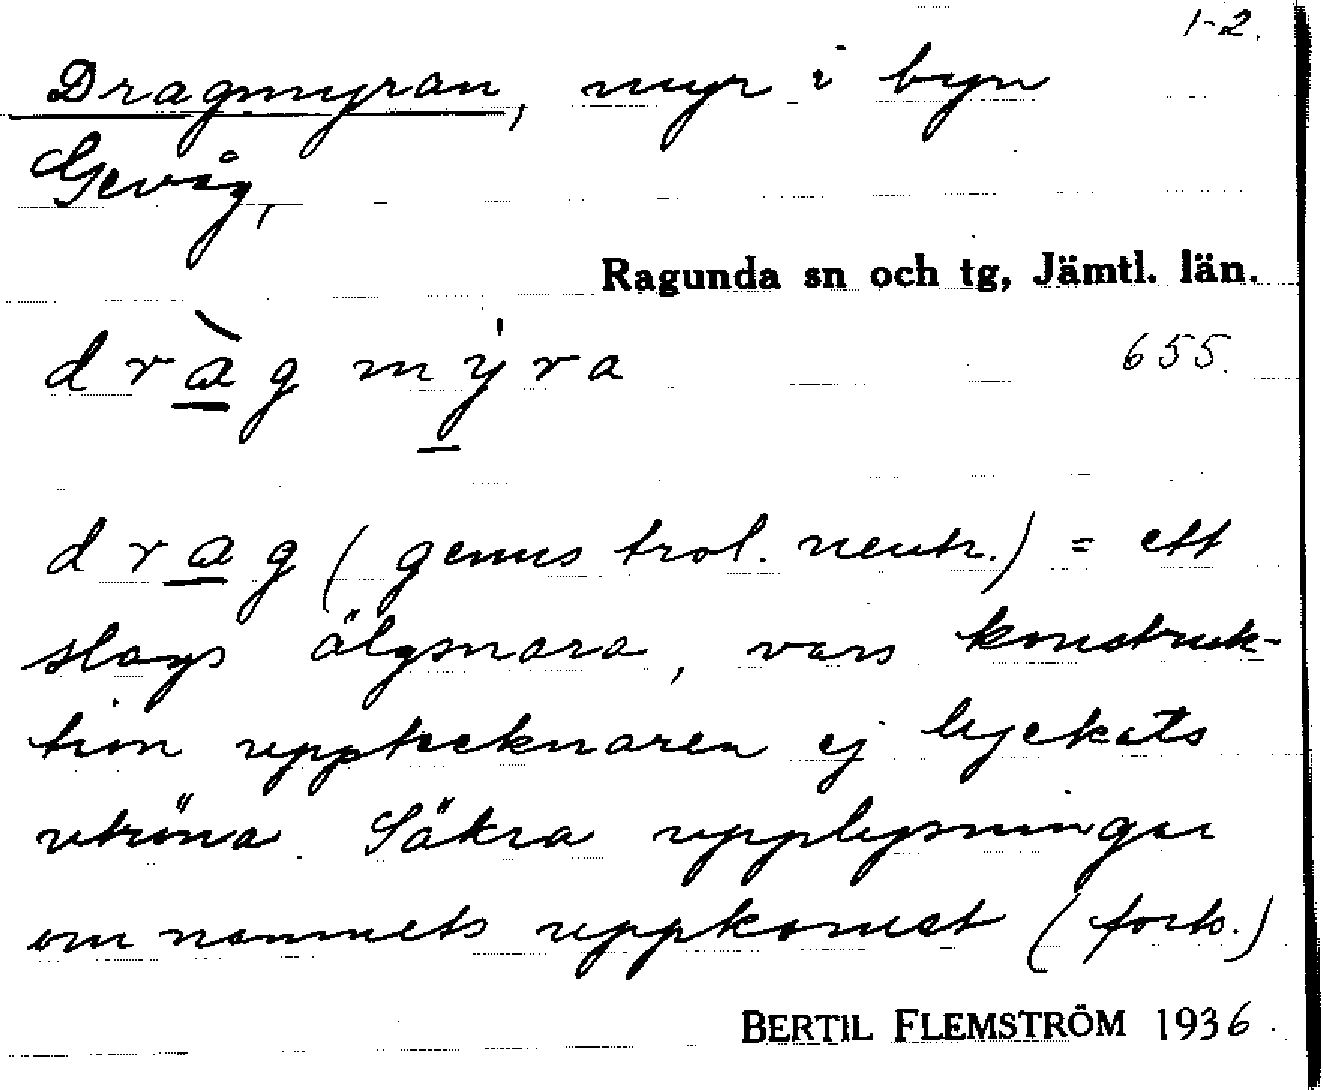 1-2.
Dragmyran, myr i byn
Gevåg,
Ragunda sn och tg, Jämtl. län.
dràgmýra 655.
drag (genus trol. neutr.) = ett
slags älgsnara, vars konstruk-
tion upptecknaren ej lyckats
utröna. Säkra upplysningar
om namnets uppkomst (forts.)
BERTIL FLEMSTRÖM 1936.